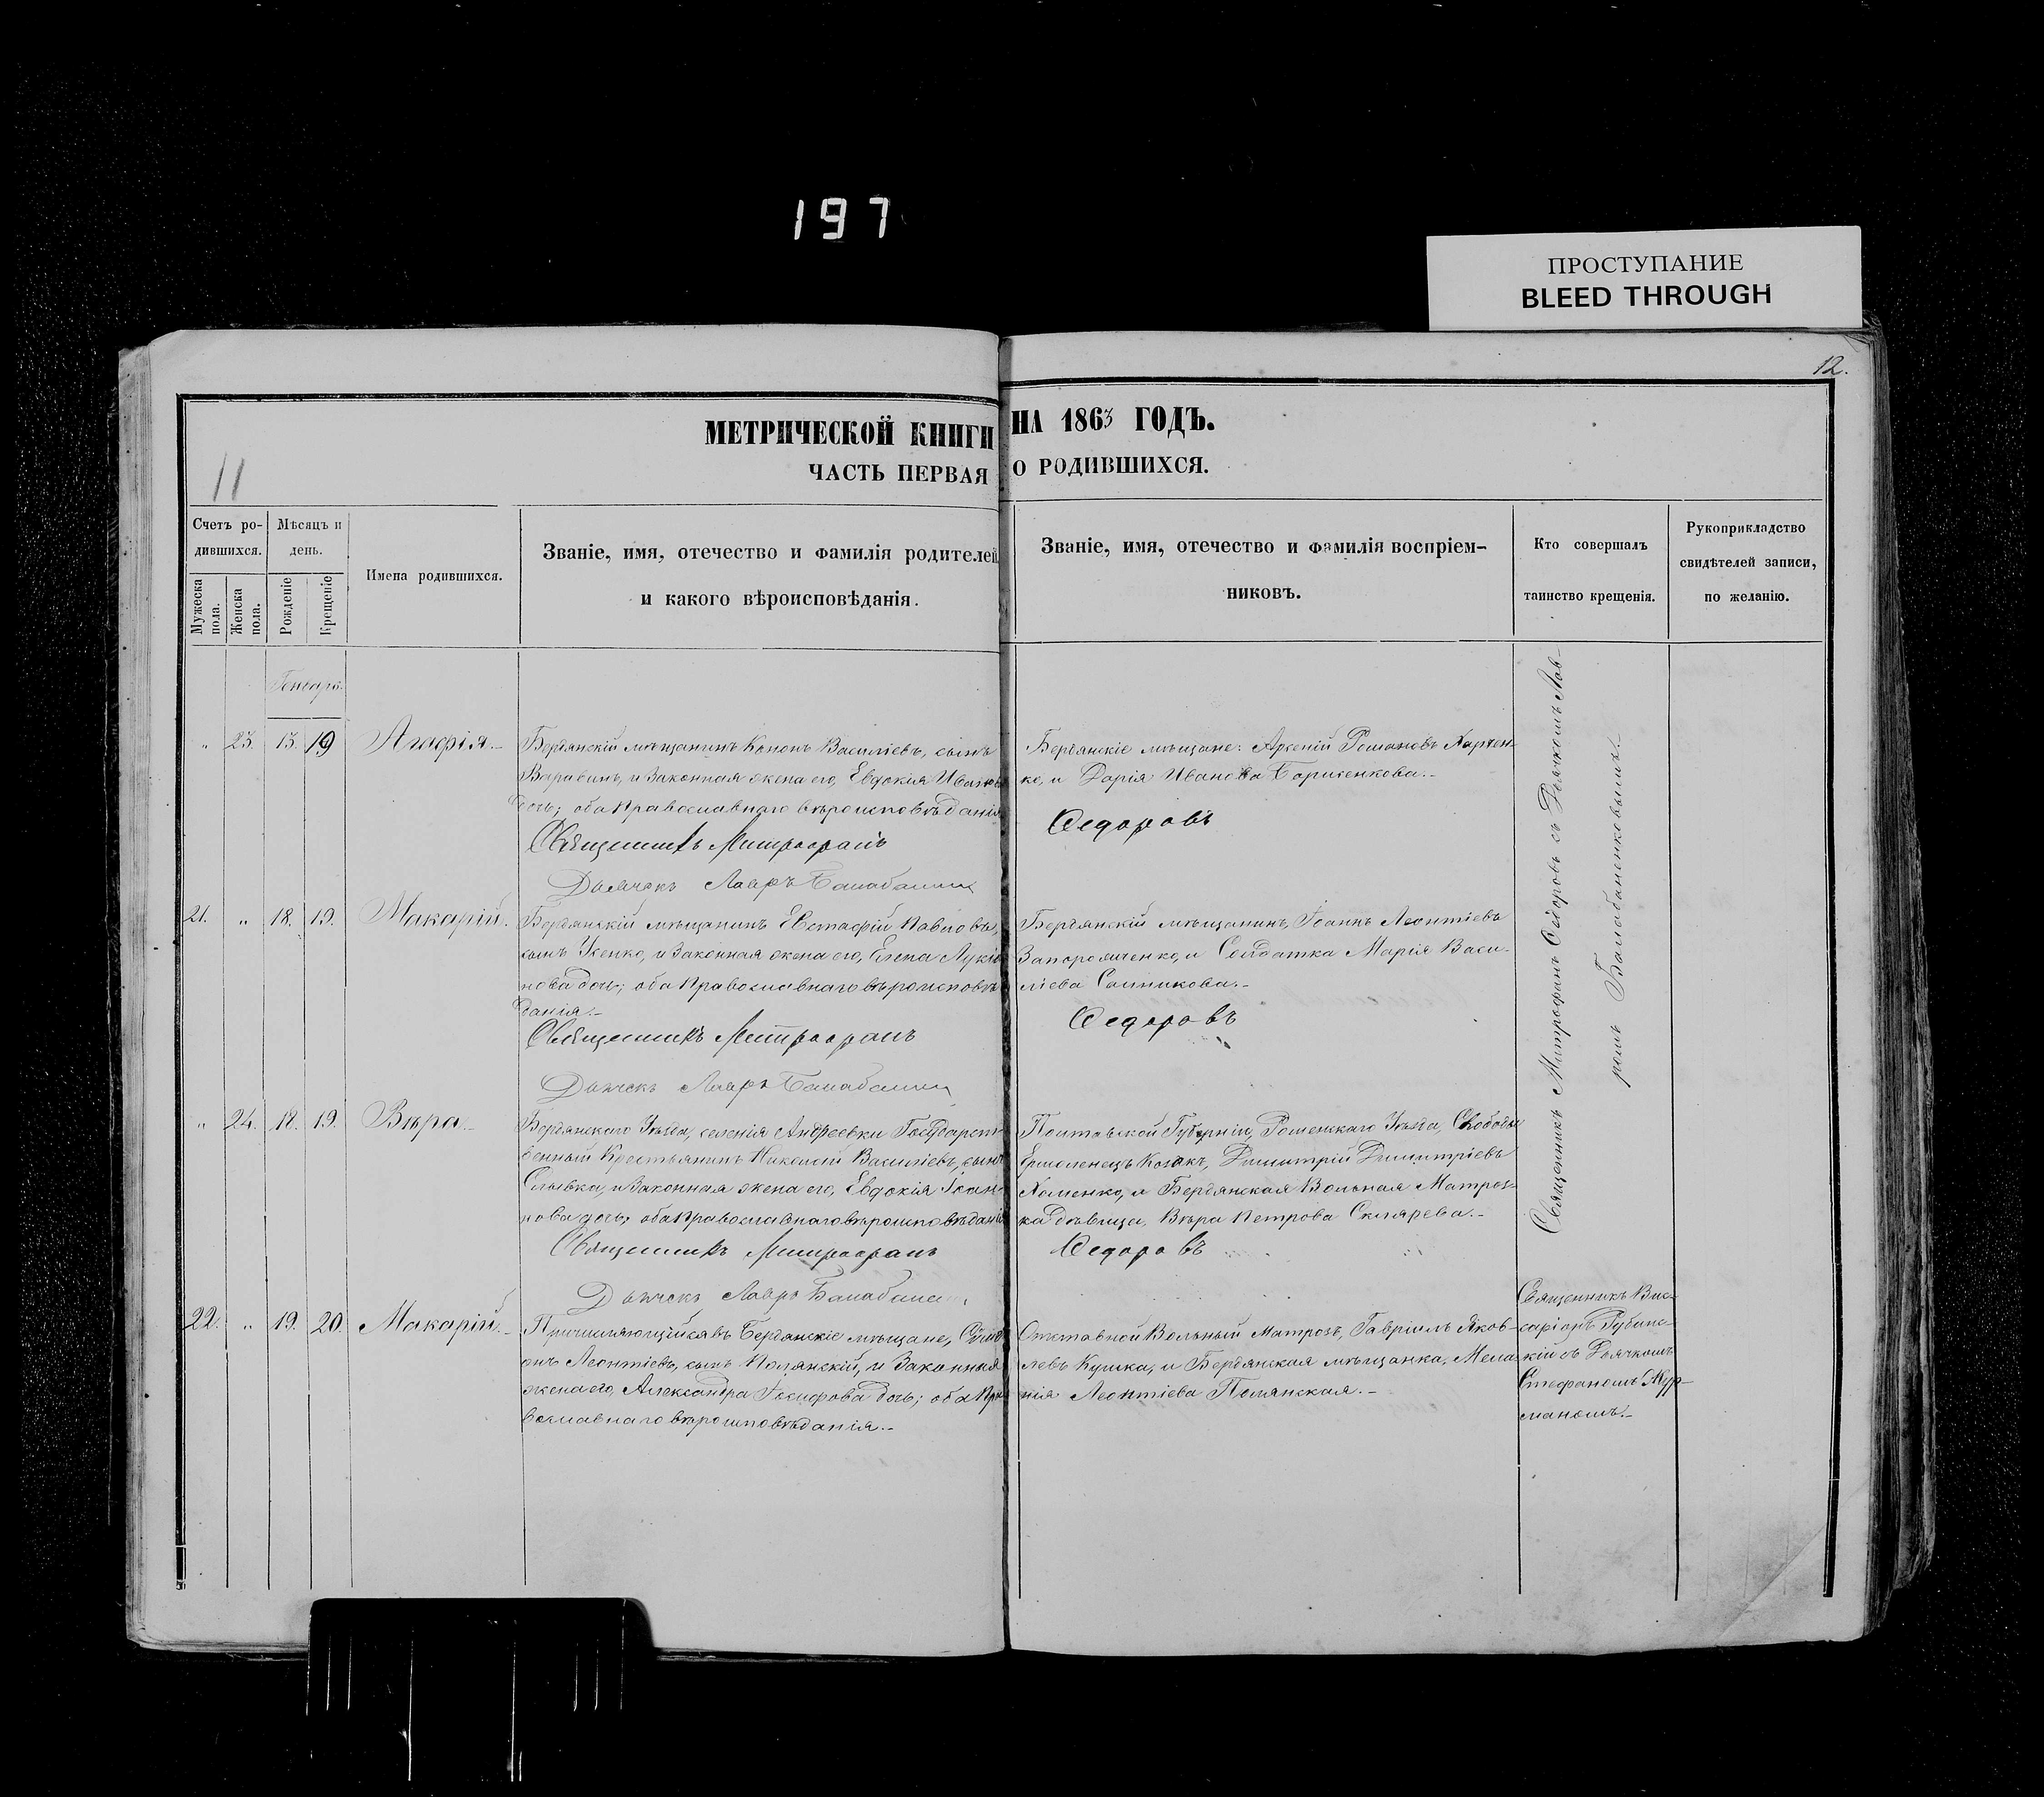 197
ПРОСТУПАНИЕ
BLEED THROUGH
12.
МЕТРИЧЕСКОЙ КНИГИ НА 1863 ГОДЪ.
11
ЧАСТЬ ПЕРВАЯ О РОДИВШИХСЯ.
Счетъ ро-
дившихся.
Мѣсяцъ и
день.
Мужеска
пола.
Женска
пола.
Рожденіе
Крещеніе
Имена родившихся.
Званіе, имя, отечество и фамилія родителей
и какого вѣроисповѣданія.
Званіе, имя, отечество и фамилія воспріем-
никовъ.
Кто совершалъ
таинство крещенія.
Рукоприкладство
свидѣтелей записи,
по желанію.
Генварь.
" 23. 15. 19 Агафія.-
Бердянскій мѣщанинъ Кононъ Василіевъ, сынъ
Варавинъ, и Законная жена его, Евдокія Иванова
дочь; оба Православнаго вѣроисповѣданія
Священникъ Митрофанъ
Дьячекъ Лавръ Балабаненк
Бердянскіе мѣщане: Арсеній Романовъ Харчен-
ко, и Дарія Иванова Борисенкова.-
Федоровъ
21. " 18. 19. Макарій.
Бердянскій мѣщанинъ Евстафій Павловъ,
сынъ Усенко, и Законная жена его, Елена Лукіа
нова дочь; оба Православнаго вѣроисповѣ
данія.-
Священникъ Митрофанъ
Дьячекъ Лавръ Балабаненк
Бердянскій мѣщанинъ, Іоаннъ Леонтіевъ
Запорожченко, и Солдатка Марія Васи-
ліева Санникова.-
Федоровъ
" 24. 18. 19. Вѣра.-
Бердянскаго Уѣзда, селенія Андреевки Государст
венный Крестьянинъ Николай Василіевъ, сынъ
Сливка, и Законная жена его, Евдокія Іоан-
нова дочь; оба Православнаго вѣроисповѣданія
Священникъ Митрофанъ
Дьячекъ Лавръ Балабанен
Полтавской Губерніи, Роменскаго Уѣзда, Слободы
Козакъ, Димитрій Димитріевъ
Хоменко, и Бердянская Вольная Матрос-
ка дѣвица, Вѣра Петрова Склярева.-
Федоровъ
Священникъ Митрофанъ Федоровъ съ Дьячкомъ Лав-
ромъ Балабаненковымъ.-
22. " 19. 20. Макарій.-
Причисляющійся въ Бердянскіе мѣщане, Симе
онъ Леонтіевъ, сынъ Полянскій, и Законная
жена его, Александра Іосифова дочь; оба Пра
вославнаго вѣроисповѣданія.-
Отставной Вольный Матрозъ, Гавріилъ Яков-
левъ Кушка, и Бердянская мѣщанка, Мела-
нія Леонтіева Полянская.-
Священникъ Вис-
саріонъ Рубинс-
кій съ Дьячкомъ
Стефаномъ Жур-
маномъ.-